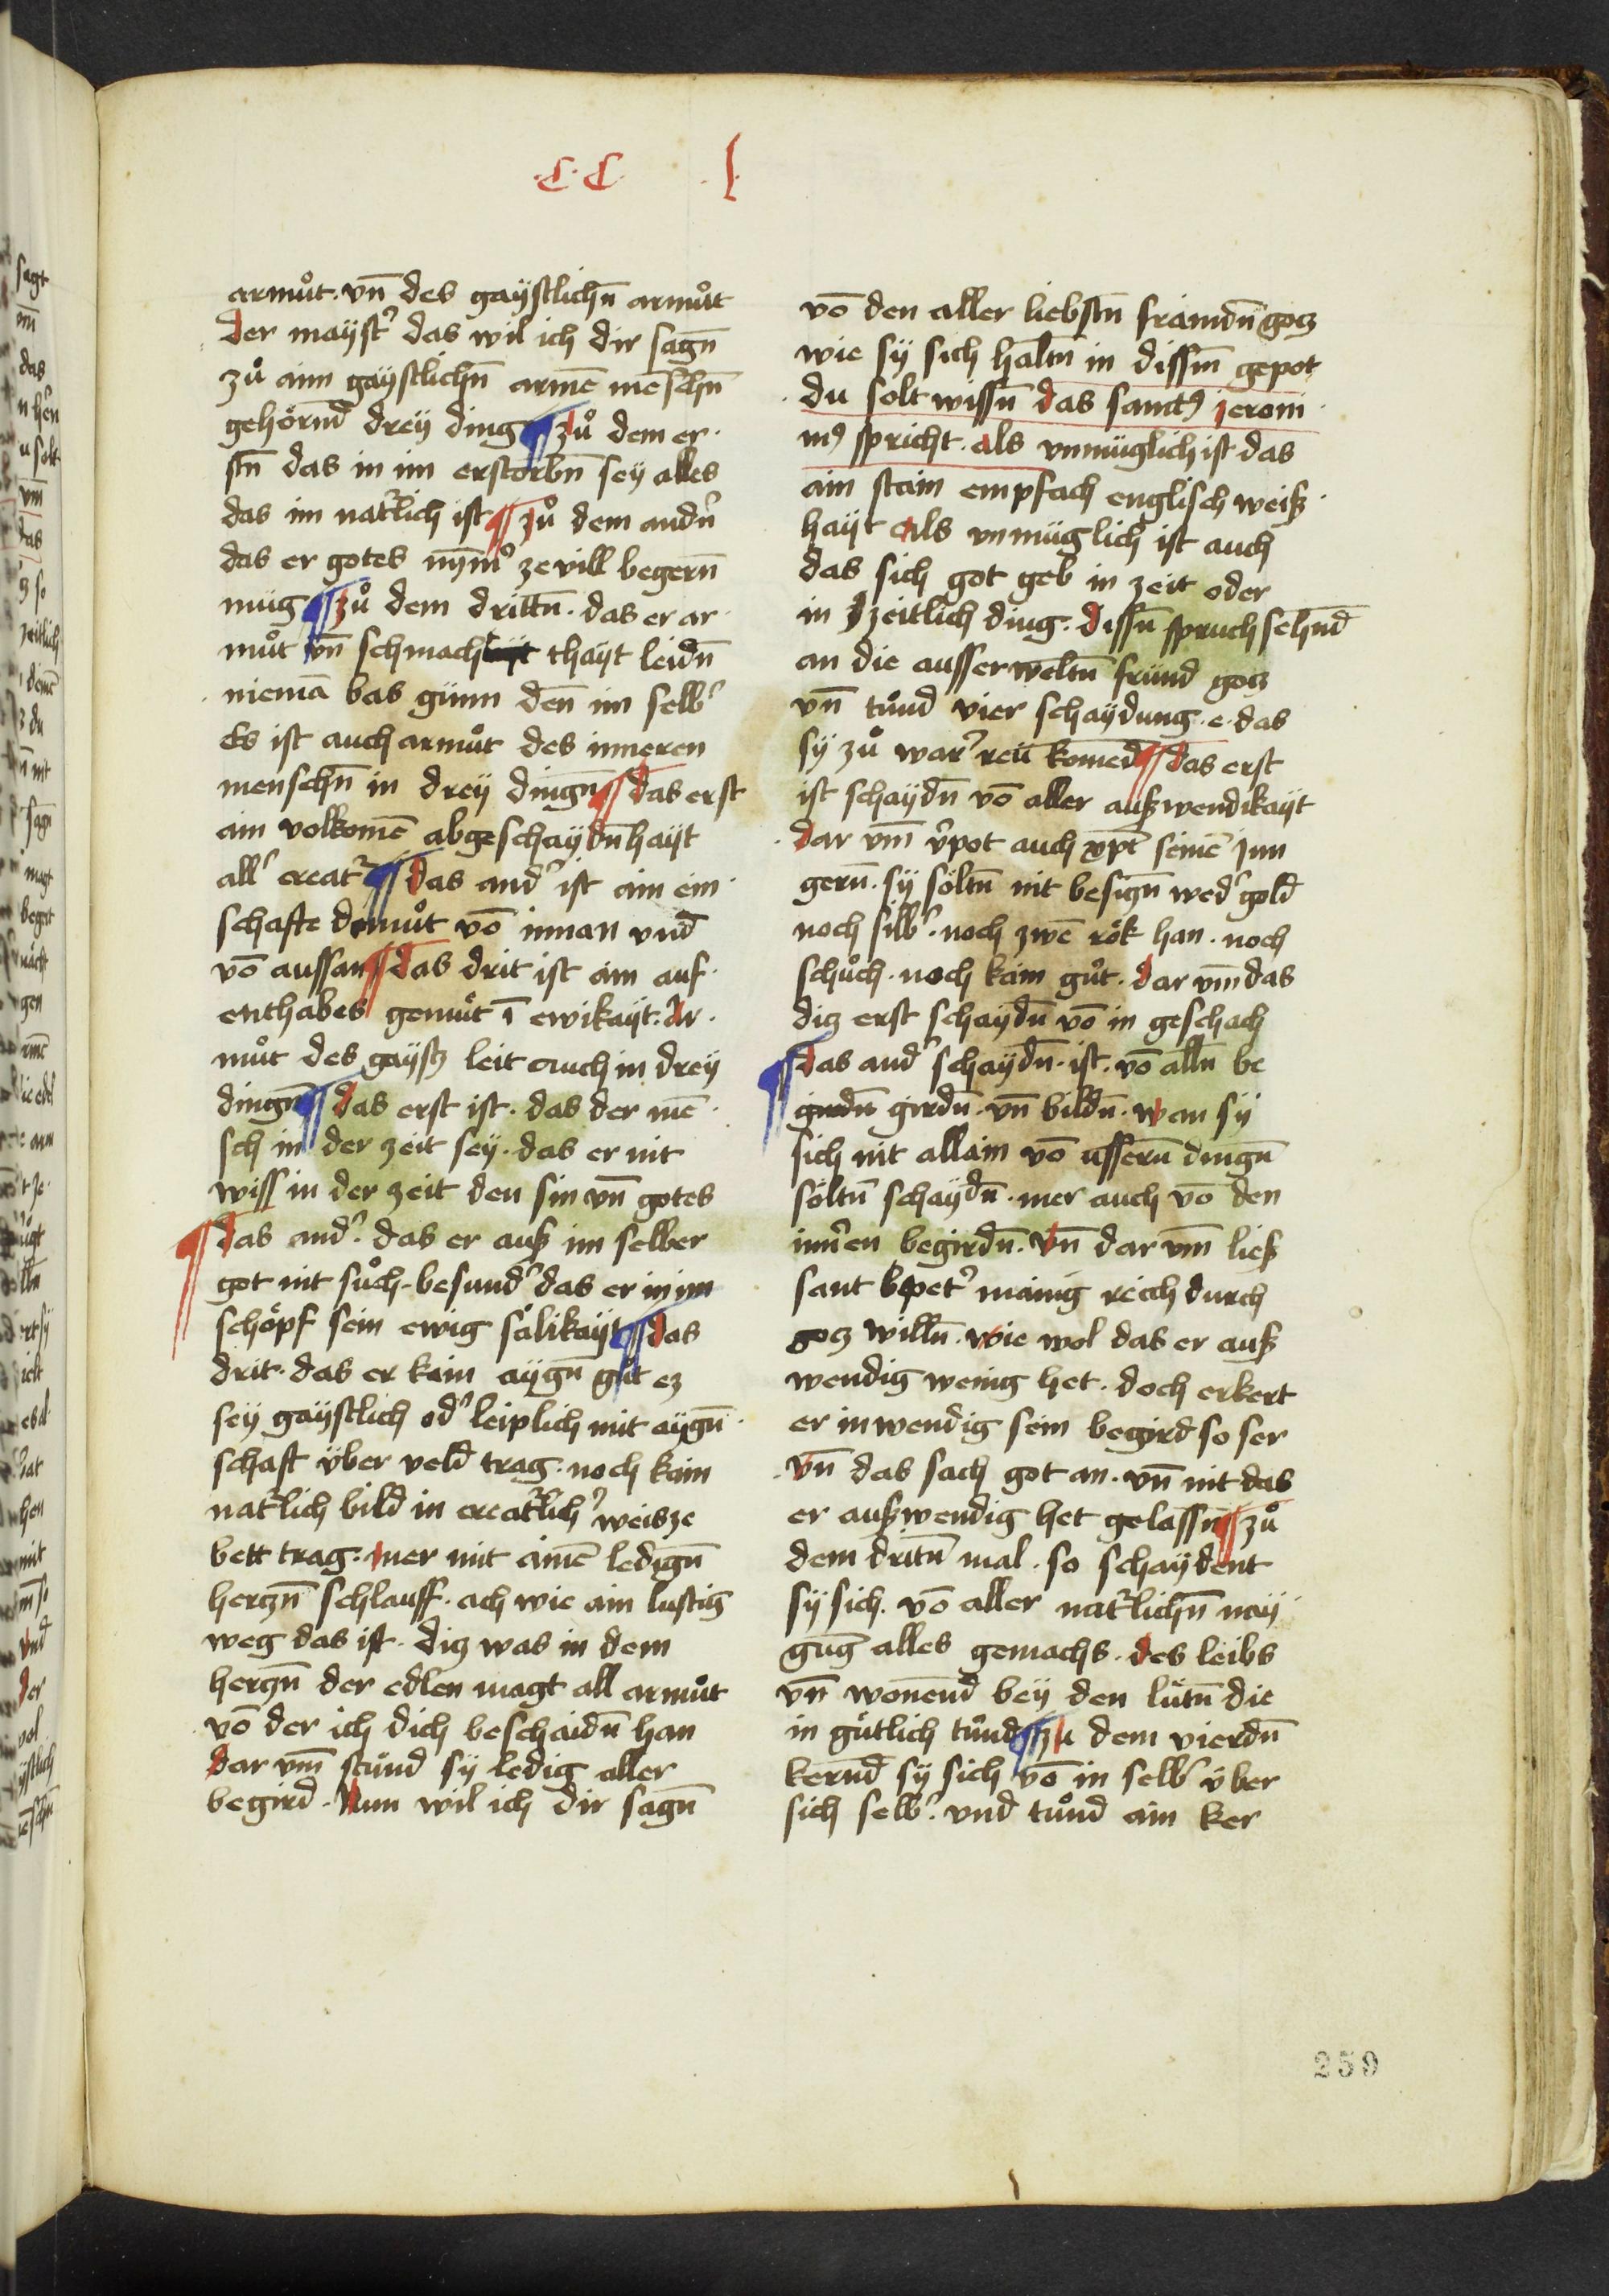 ·C·C· ·l·
armuͦt · vn̄ des gaystlichn̄ armuͦt
der mayst᷑ das wil ich dir sagn̄
zuͦ aim gaystlichn̄ armē mēschn̄
gehoͤrnd̄ drey ding ¶ zuͦ dem er·
stn̄ das in im erstorbn̄ sey alles
das im nat᷑lich ist ¶ zuͦ dem andn᷑
das er gotes nym̄᷑ ze vill begern̄
müg ¶ zuͦ dem drittn̄ · das er ar·
muͦt vn̄ schmach thayt leidn̄
niemā bas günn den̄ im selb᷑
Es ist auch armuͦt des inneren
menschn̄ in drey dingn̄ ¶ das erst
ain volkomē abgeschaydn̄hayt
all᷑ creat᷑ ¶ das and᷑ ist ain ein·
schafte demuͦt vō innan vnd̄
vō aussan ¶ das drit ist ain auf·
enthabes gemuͤt ī ewikayt · Ar·
muͦt des gaystz leit auch in drey
dingn̄ ¶ das erst ist · das der mē·
sch in der zeit sey · das er nit
wiss in der zeit den sin vn̄ gotes
¶ das and᷑ · das er auß im selber
got nit suͦch · besund᷑ das er in im
schoͤpf sein ewig saͤlikayt ¶ das
drit · das er kain aygn̄ guͦt ez
sey gaystlich od᷑ leiplich mit aygn̄·
schaft über veld̄ trag · noch kain
nat᷑lich bild̄ in creat᷑lich᷑ weis ze
bett trag · mer mit aimē ledign̄
herczn̄ schlauff · ach wie ain lustig
weg das ist · dicz was in dem
herczn̄ der edlen magt all armuͦt
vō der ich dich beschaidn̄ han
dar vm̄ stuͦnd sy ledig aller
begird · Nun wil ich dir sagn̄
vō den aller liebstn̄ fraindn̄ gocz
wie sy sich haltn̄ in dissm̄ gepot
du solt wissn̄ das sanctꝰ jeroni·
mꝰ spricht · als vnmüglich ist das
ain stain empfach englisch weiß·
hayt als vnmüglich ist auch
das sich got geb in zeit oder
in zeitlich ding · dissn̄ spruch sehn̄d
an die ausserweltn̄ fründ gocz
vn̄ tuͦnd vier schaydung · e · das
sy zuͦ war᷑ reü komēd ¶ das erst
ist schaydn̄ vō aller außwendikayt
dar vm̄ v᷑pot auch xp̄t seinē jun
gern̄ · sy soͤltn̄ nit besiczn̄ wed᷑ gold̄
noch silb᷑ · noch zwē roͤk han · noch
schuͦch · noch kain guͦt · dar vm̄ das
dicz erst schaydn̄ vō in geschach
¶ das and᷑ schaydn̄ · ist · vō alln̄ be
girdn̄ · vn̄ bildn̄ · wan sy
sich nit allain vō ussern̄ dingn̄
soͤltn̄ schaydn̄ · mer auch vō den
inn᷑en begirdn̄ · vn̄ dar vm̄ ließ
sant pet᷑ mainig reich durch
gocz willn̄ · wie wol das er auß
wendig wenig het · doch erkert
er inwendig sein begird so ser
vn̄ das sach got an · vn̄ nit das
er außwendig het gelassn̄ ¶ zuͦ
dem dritn̄ mal · so schaydent
sy sich · vō aller nat᷑lichn̄ nay·
gūg alles gemachs · des leibs
vn̄ wonēnd̄ bey den luͤtn̄ die
in guͤtlich tuͦnd ¶ zu dem vierdn̄
kernd̄ sy sich vō in selb᷑ über
sich selb᷑ · vnd tuͦnd ain ker
259